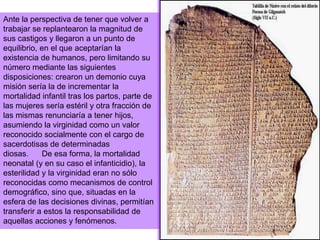 Ante la perspectiva de tener que volver a
trabajar se replantearon la magnitud de
sus castigos y llegaron a un punto de
equilibrio, en el que aceptarían la
existencia de humanos, pero limitando su
número mediante las siguientes
disposiciones: crearon un demonio cuya
misión sería la de incrementar la
mortalidad infantil tras los partos, parte de
las mujeres sería estéril y otra fracción de
las mismas renunciaría a tener hijos,
asumiendo la virginidad como un valor
reconocido socialmente con el cargo de
sacerdotisas de determinadas
diosas. De esa forma, la mortalidad
neonatal (y en su caso el infanticidio), la
esterilidad y la virginidad eran no sólo
reconocidas como mecanismos de control
demográfico, sino que, situadas en la
esfera de las decisiones divinas, permitían
transferir a estos la responsabilidad de
aquellas acciones y fenómenos.
Tablilla de Nínive con el relato del diluvio
Poema de Gilgamesh
(Siglo VII a.C.)